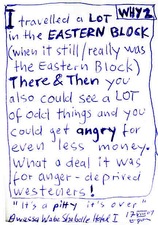 WHY2
I travelled a LOT
in the EASTERN BLOCK
(when it still/really was
the Eastern Block)
There & Then you
also could see a LOT
of odd things and you
could get angry for
even less money.
What a deal it was
for anger-deprived
westeners!
"It's a pitty it's over"
Awassa Wabe Shebelle Hotel I